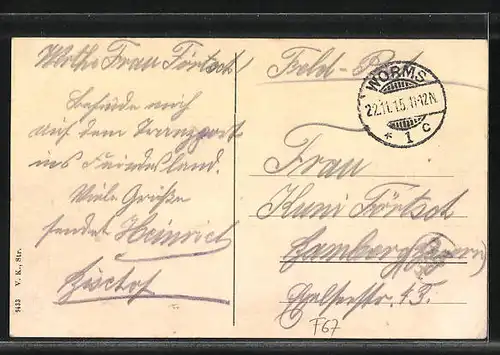 Werthe Frau Förtsch!
Befinde mich
auf dem Transport
ins Feindesland.
Viele Grüße
sendet Heinrich
Bischof
9433 V. K., Str.
Feld-Post
WORMS
22.11.15.11-12N.
* 1 c
Frau
Kuni Förtsch
Bamberg (Bayern)
F67